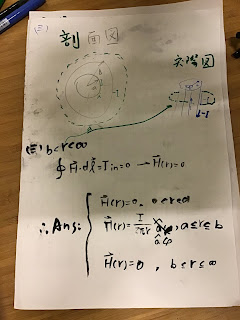 (三)
剖面图
实際图
I
-I
(三) b<r<∞
∮ H⃗·dl⃗ = Iin = 0 → H⃗(r)=0
∴ Ans:
H⃗(r)=0, 0<r<a
H⃗(r)= I/2πr âφ, a≤r≤b
H⃗(r)=0, b≤r≤∞